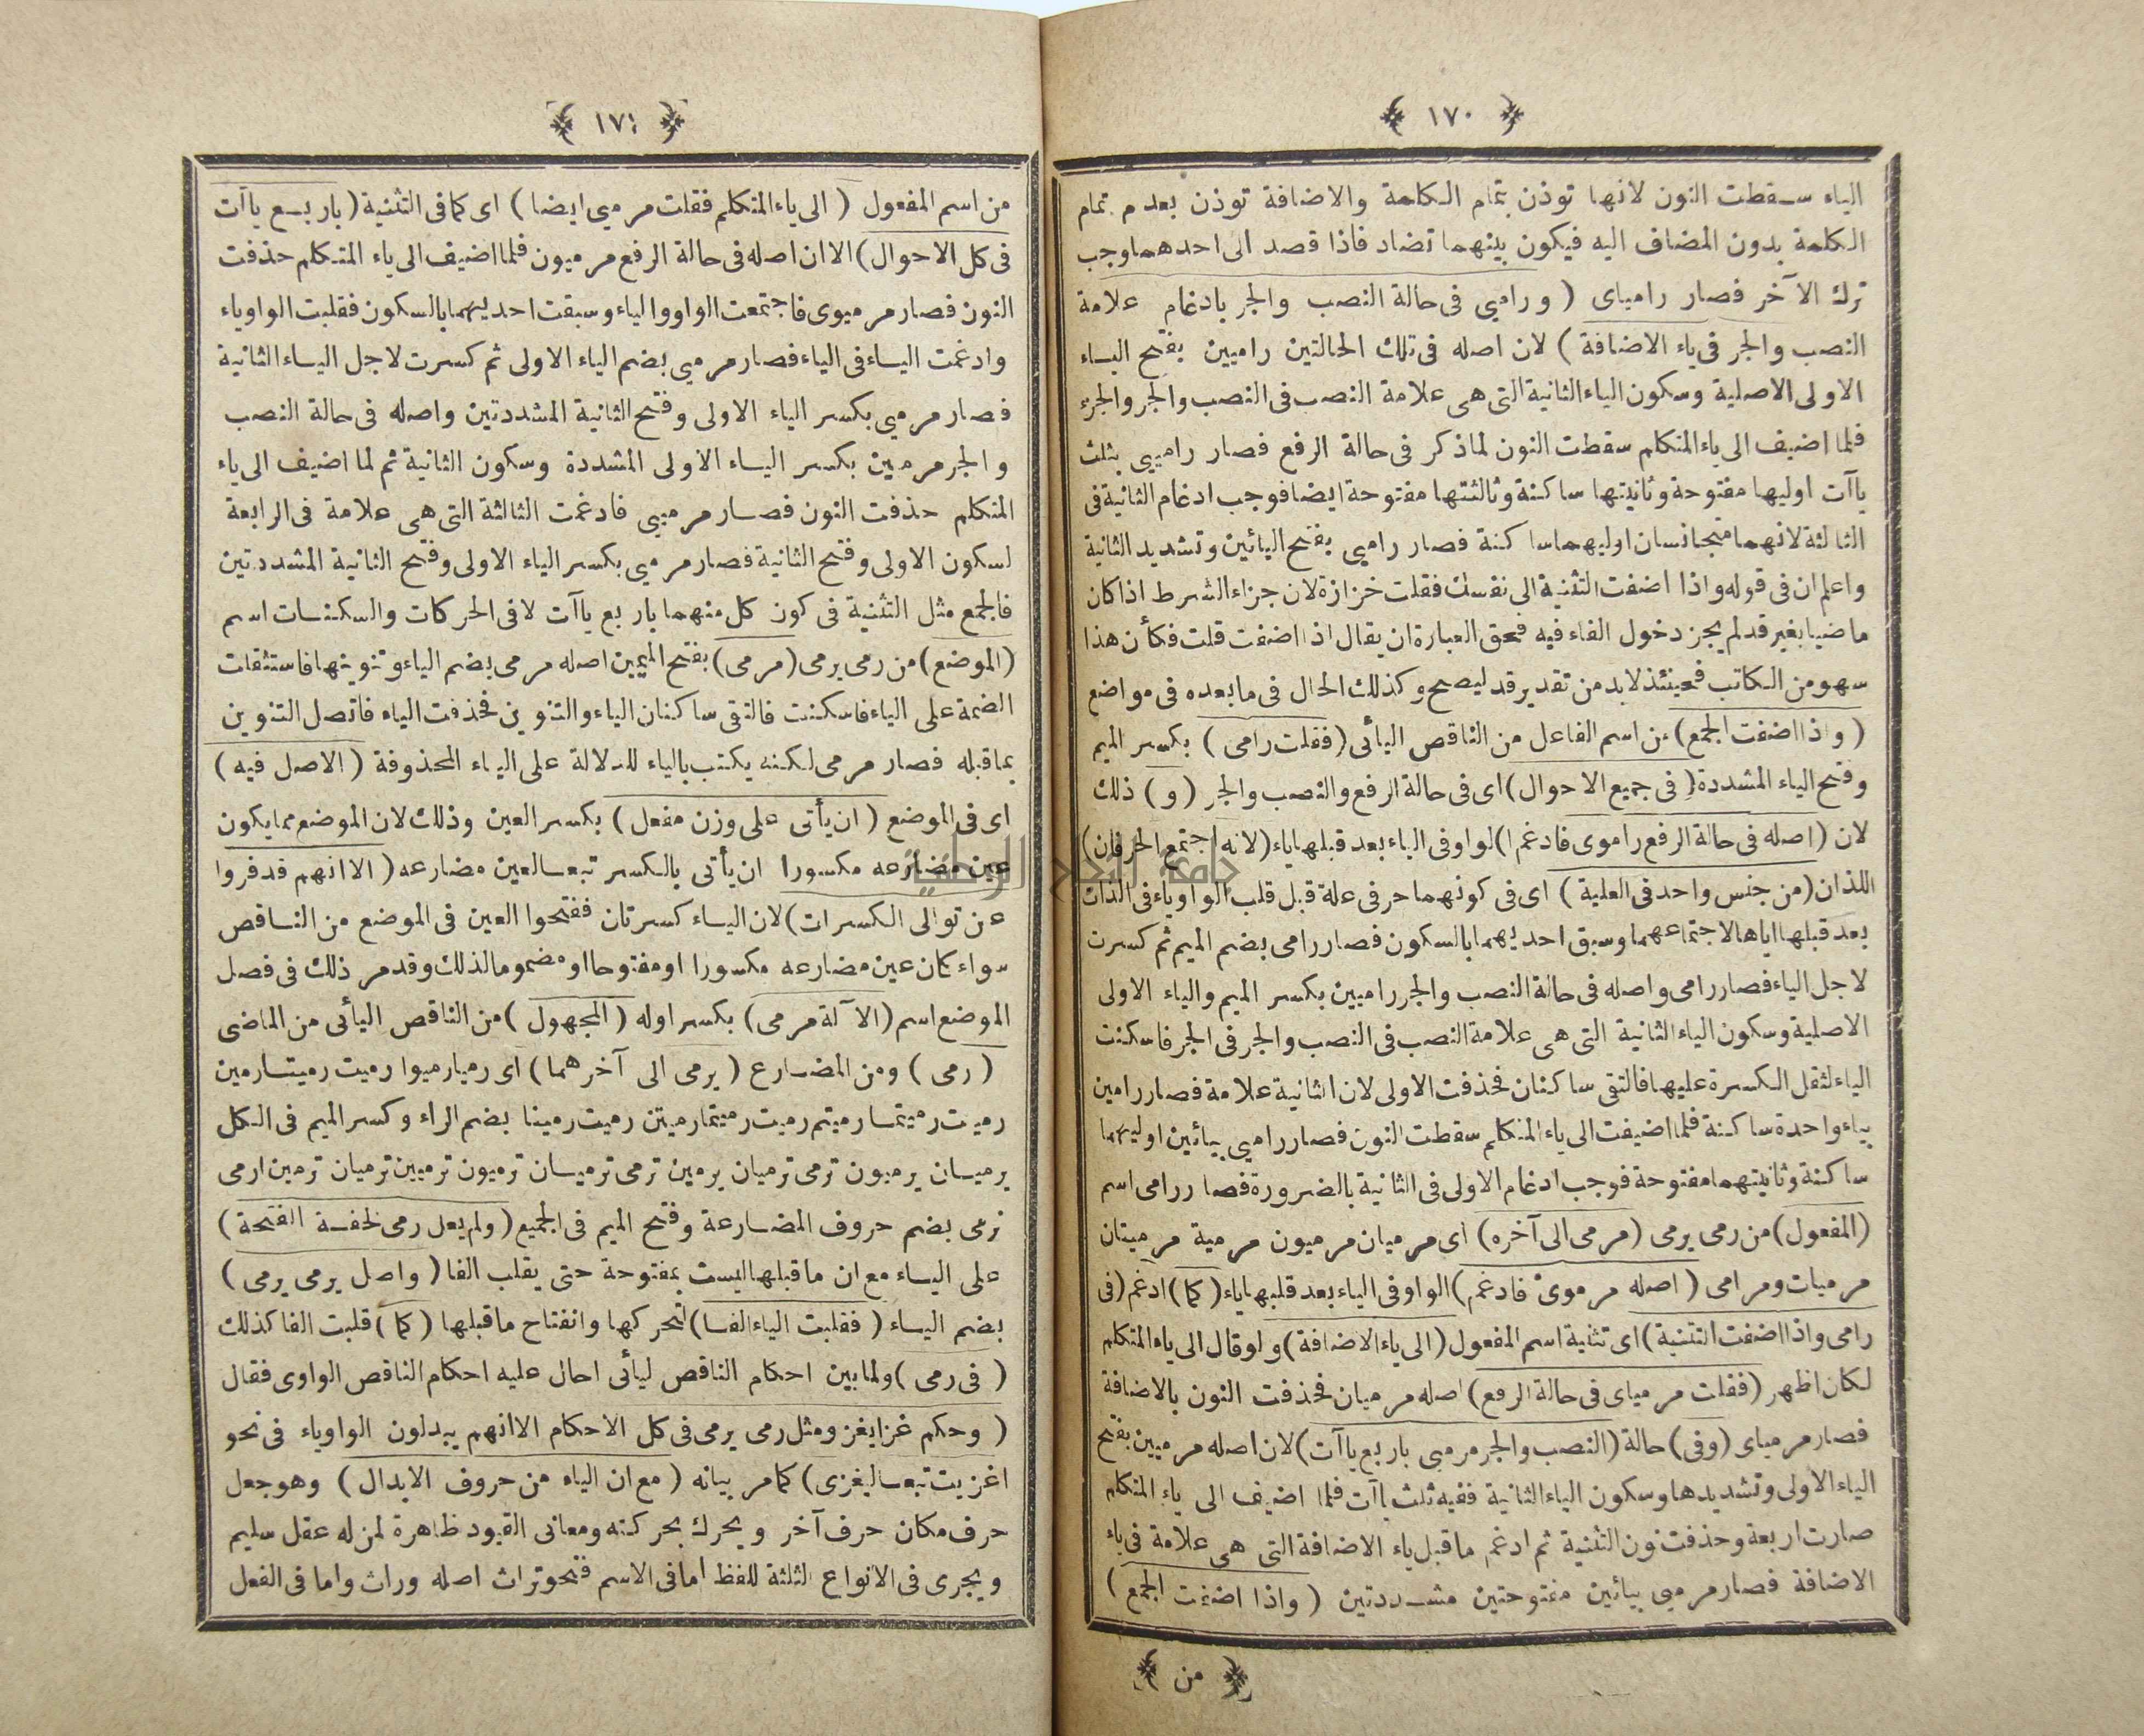 ﴿ ١٧٠ ﴾
الياء سقطت النون لانها توذن بتمام الكلمة والاضافة توذن بعدم تمام
الكلمة بدون المضاف اليه فيكون بينهما تضاد فاذا قصد الى احدهما وجب
ترك الآخر فصار رامياى ( ورامیی فى حالة النصب والجر بادغام علامة
النصب والجر فى ياء الاضافة ) لان اصله فى تلك الحالتين راميين بفتح الياء
الاولى الاصلية وسكون الياء الثانية التى هى علامة النصب فى النصب والجر والجرّ
فلما اضيف الى ياء المتكلم سقطت النون لما ذكر فى حالة الرفع فصار راميیی بثلث
ياآت اوليها مفتوحة وثانيتها ساكنة وثالثتها مفتوحة ايضا فوجب ادغام الثانية فى
الثالثة لانهما متجانسان اوليهما ساكنة فصار راميی بفتح اليائين وتشديد الثانية
واعلم ان فى قوله واذا اضفت التثنية الى نفسك فقلت خزازة لان جزاء الشرط اذا كان
ماضيا بغير قد لم يجز دخول الفاء فيه فحق العبارة ان يقال اذا اضفت قلت فكأن هذا
سهو من الكاتب فحينئذ لابد من تقدير قد ليصح وكذلك الحال فى ما بعده فى مواضع
( واذا اضفت الجمع ) من اسم الفاعل من الناقص اليائى ( فقلت رامى ) بكسر الميم
وفتح الياء المشددة ( فى جميع الاحوال ) اى فى حالة الرفع والنصب والجر ( و ) ذلك
لان ( اصله فى حالة الرفع راموى فادغم ا ) لواو فى الياء بعد قبلها ياء ( لانه اجتمع الحرفان )
اللذان ( من جنس واحد فى العلية ) اى فى كونهما حرفى علة قبل قلب الواو ياء فى الذات
بعد قبلها اياها لاجتماعهما وسبق احديهما بالسكون فصار رامى بضم الميم ثم كسرت
لاجل الياء فصار رامى واصله فى حالة النصب والجر راميين بكسر الميم والياء الاولى
الاصلية وسكون الياء الثانية التى هى علامة النصب فى النصب والجر فى الجر فاسكنت
الياء لثقل الكسرة عليها فالتقى ساكنان فحذفت الاولى لان الثانية علامة فصار رامين
بياء واحدة ساكنة فلما اضيفت الى ياء المتكلم سقطت النون فصار راميی بيائين اوليهما
ساكنة وثانيتهما مفتوحة فوجب ادغام الاولى فى الثانية بالضرورة فصار رامى اسم
( المفعول ) من رمى يرمى ( مرمى الى آخره ) اى مرميان مرميون مرمية مرميتان
مرميات ومرامى ( اصله مرموى فادغم ) الواو فى الياء بعد قلبها ياء ( كما ) ادغم ( فى
رامى واذا اضفت التثنية ) اى تثنية اسم المفعول ( الى ياء الاضافة ) ولو قال الى ياء المتكلم
لكان اظهر ( فقلت مرمياى فى حالة الرفع ) اصله مرميان فحذفت النون بالاضافة
فصار مرمياى ( وفى ) حالة ( النصب والجر مرميی باربع ياآت ) لان اصله مرميين بفتح
الياء الاولى وتشديدها وسكون الياء الثانية ففيه ثلث ياآت فلما اضيف الى ياء المتكلم
صارت اربعة وحذفت نون التثنية ثم ادغم ما قبل ياء الاضافة التى هى علامة فى ياء
الاضافة فصار مرميی بيائين مفتوحتين مشددتين ( واذا اضفت الجمع )
﴿ من ﴾
﴿ ١٧١ ﴾
من اسم المفعول ( الى ياء المتكلم فقلت مرميی ايضا ) اى كما فى التثنية ( باربع ياآت
فى كل الاحوال ) الا ان اصله فى حالة الرفع مرميون فلما اضيف الى ياء المتكلم حذفت
النون فصار مرميوى فاجتمعت الواو والياء وسبقت احديهما بالسكون فقلبت الواو ياء
وادغمت الياء فى الياء فصار مرميی بضم الياء الاولى ثم كسرت لاجل الياء الثانية
فصار مرميی بكسر الياء الاولى وفتح الثانية المشددتين واصله فى حالة النصب
والجر مرميين بكسر الياء الاولى المشددة وسكون الثانية ثم لما اضيف الى ياء
المتكلم حذفت النون فصار مرميیی فادغمت الثالثة التى هى علامة فى الرابعة
لسكون الاولى وفتح الثانية فصار مرميی بكسر الياء الاولى وفتح الثانية المشددتين
فالجمع مثل التثنية فى كون كل منهما باربع ياآت لا فى الحركات والسكنات اسم
( الموضع ) من رمى يرمى ( مرمى ) بفتح الميمين اصله مرمى بضم الياء وتنوينها فاستثقلت
الضمة على الياء فاسكنت فالتقى ساكنان الياء والتنوين فحذفت الياء فاتصل التنوين
بما قبله فصار مرمى لكنه يكتب بالياء للدلالة على الياء المحذوفة ( الاصل فيه )
اى فى الموضع ( ان يأتى على وزن مفعل ) بكسر العين وذلك لان الموضع مما يكون
عين مضارعه مكسورا ان يأتى بالكسر تبعا لعين مضارعه ( الا انهم قد فروا
عن توالى الكسرات ) لان الياء كسرتان ففتحوا العين فى الموضع من الناقص
سواء كان عين مضارعه مكسورا او مفتوحا او مضموما لذلك وقد مر ذلك فى فصل
الموضع اسم ( الآلة مرمى ) بكسر اوله ( المجهول ) من الناقص اليائى من الماضى
( رمى ) ومن المضارع ( يرمى الى آخرهما ) اى رميا رميوا رميت رميتا رمين
رميت رميتما رميتم رميت رميتما رميتن رميت رمينا بضم الراء وكسر الميم فى الكل
يرميان يرميون ترمى ترميان يرمين ترمى ترميان ترميون ترميين ترميان ترمين ارمى
نرمى بضم حروف المضارعة وفتح الميم فى الجميع ( ولم يعل رمى لخفة الفتحة )
على الياء مع ان ما قبلها ليست بمفتوحة حتى يقلب الفا ( واصل يرمى يرمى )
بضم الياء ( فقلبت الياء الفا ) لتحركها وانفتاح ما قبلها ( كما ) قلبت الفا كذلك
( فى رمى ) ولما بين احكام الناقص ليائى احال عليه احكام الناقص الواوى فقال
( وحكم غزا يغزو مثل رمى يرمى فى كل الاحكام الا انهم يبدلون الواو ياء فى نحو
اغزيت تبعا ليغزى ) كما مر بيانه ( مع ان الياء من حروف الابدال ) وهو جعل
حرف مكان حرف آخر ويحرك بحركته ومعانى القيود ظاهرة لمن له عقل سليم
ويجرى فى الانواع الثلثة للفظ اما فى الاسم فنحو تراث اصله وراث واما فى الفعل
جامعة النجاح الوطنية